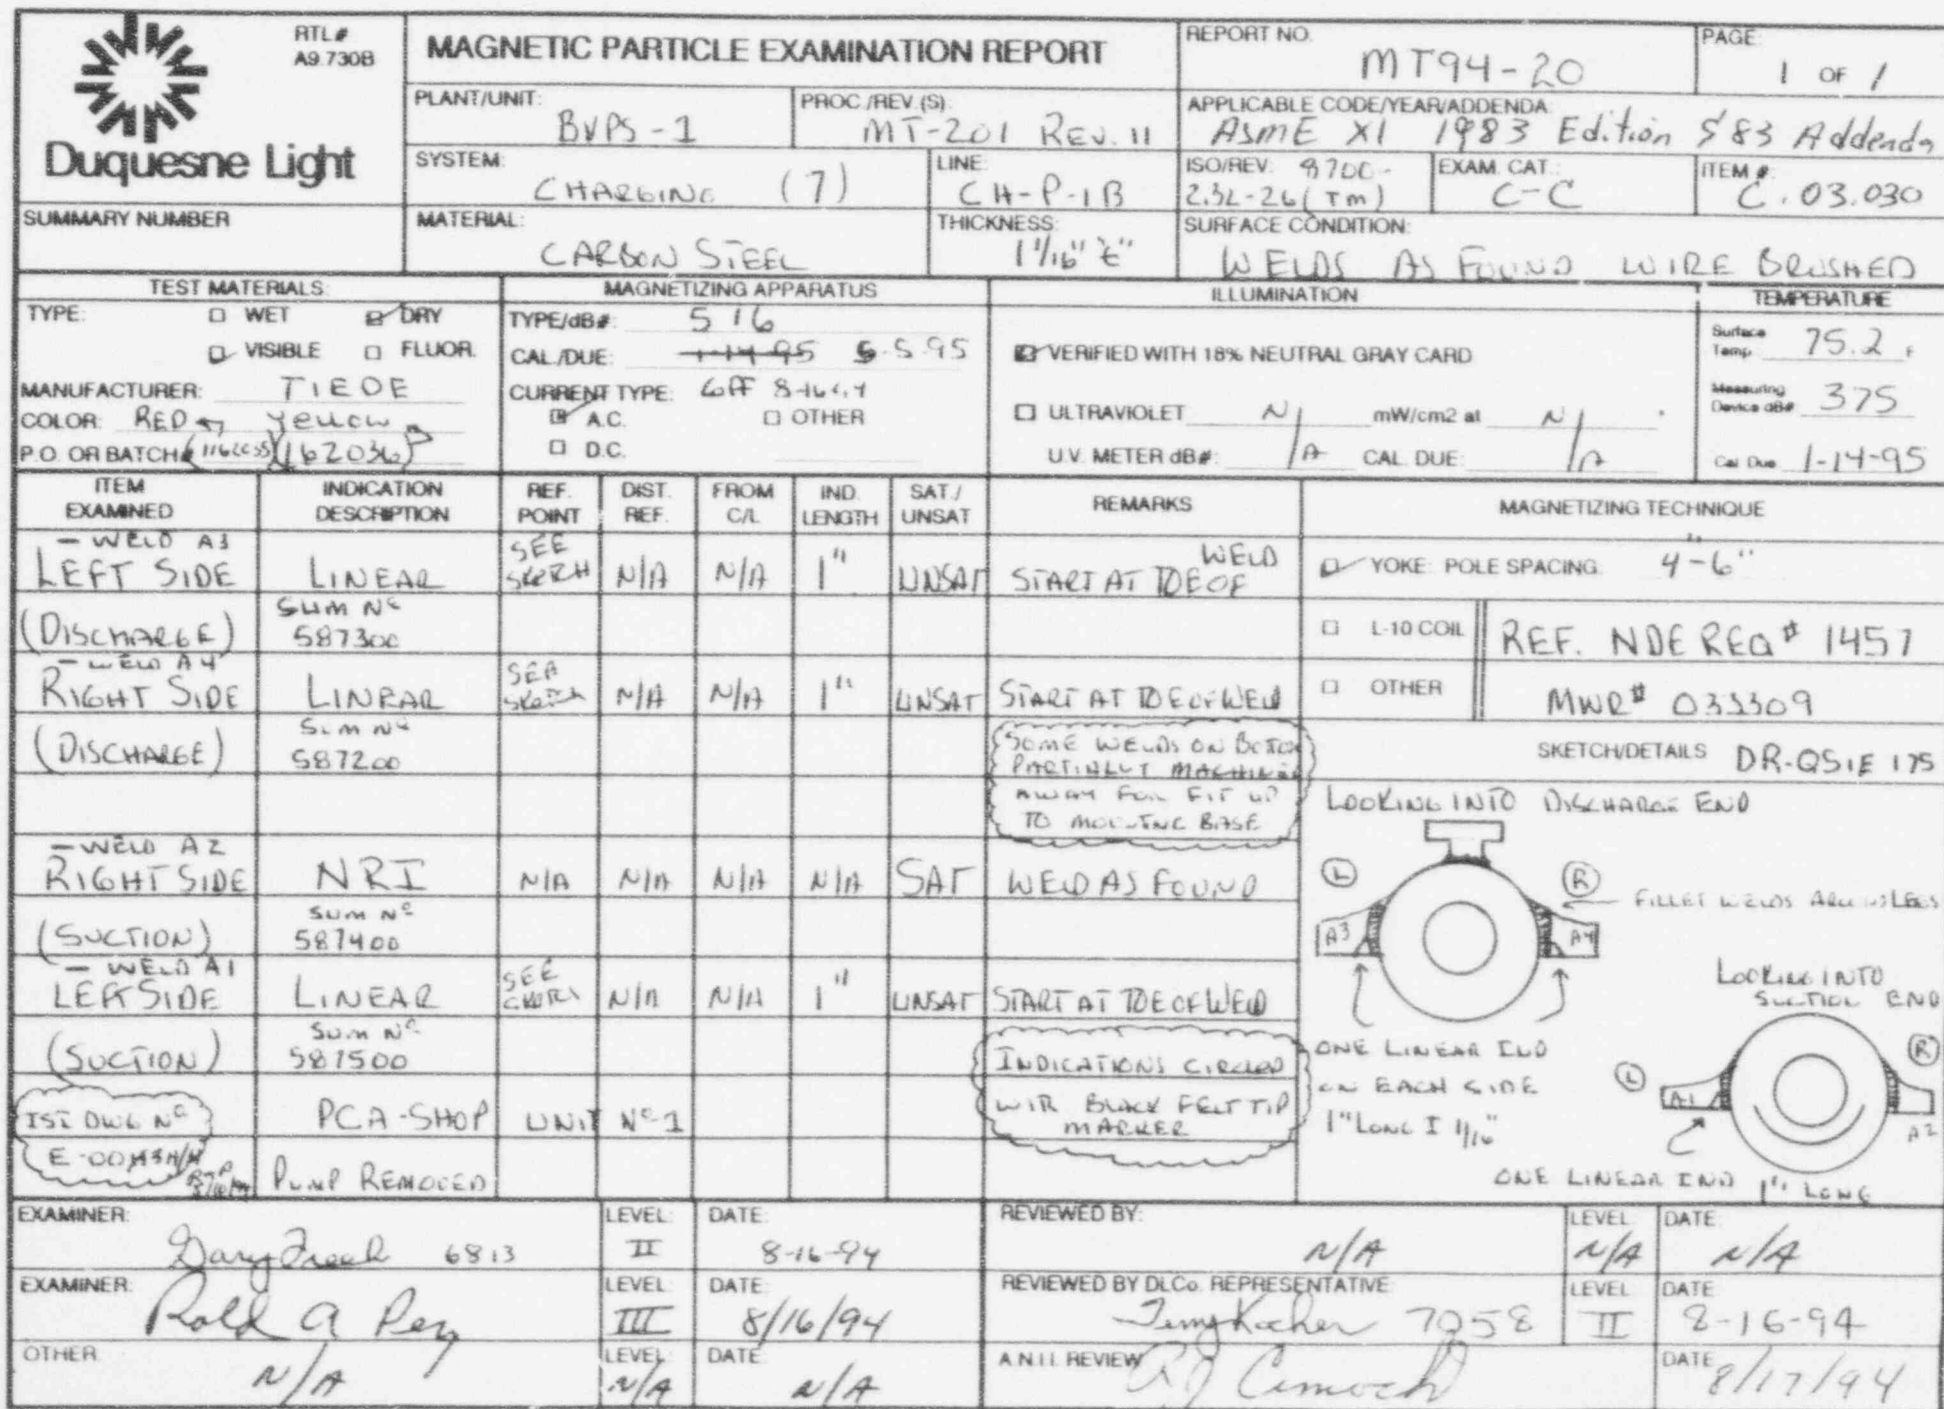 RTL#
A9.730B
Duquesne Light
MAGNETIC PARTICLE EXAMINATION REPORT
REPORT NO. MT94-20
PAGE: 1 OF 1
PLANT/UNIT: BVPS-1
PROC./REV.(S) MT-201 REV. 11
APPLICABLE CODE/YEAR/ADDENDA
ASME XI 1983 Edition S 83 Addenda
SYSTEM: CHARGING (7)
LINE: CH-P-1B
ISO/REV. 8700-
2.32-26 (TM)
EXAM. CAT.: C-C
ITEM # C.03.030
SUMMARY NUMBER
MATERIAL: CARBON STEEL
THICKNESS: 1 1/16" "t"
SURFACE CONDITION:
WELDS AS FOUND WIRE BRUSHED
TEST MATERIALS:
TYPE: WET DRY
VISIBLE FLUOR.
MANUFACTURER: TIEDE
COLOR: RED yellow
P.O. OR BATCH# (162036)
MAGNETIZING APPARATUS
TYPE/dB#: 516
CAL./DUE: 1-14-95 5-5-95
CURRENT TYPE: GFF 8-16-94
A.C. OTHER
D.C.
ILLUMINATION
VERIFIED WITH 18% NEUTRAL GRAY CARD
ULTRAVIOLET N/A mW/cm2 at N/A
U.V. METER dB#: CAL. DUE:
TEMPERATURE
Surface Temp. 75.2 F
Measuring Device dB# 375
Cal. Due 1-14-95
ITEM EXAMINED
INDICATION DESCRIPTION
REF. POINT
DIST. REF.
FROM C/L
IND. LENGTH
SAT./ UNSAT
REMARKS
MAGNETIZING TECHNIQUE
- WELD A3
LEFT SIDE LINEAR SEE SKETCH N/A N/A 1" UNSAT START AT TOE OF WELD
(DISCHARGE) SUM No 587300
- WELD A4
RIGHT SIDE LINEAR SEE SKETCH N/A N/A 1" UNSAT START AT TOE OF WELD
(DISCHARGE) SUM No 587200
SOME WELDS ON BOTTOM
PARTIALLY MACHINED
AWAY FOR FIT UP
TO MOUNTING BASE
- WELD A2
RIGHT SIDE NRI N/A N/A N/A N/A SAT WELD AS FOUND
(SUCTION) SUM No 587400
- WELD A1
LEFT SIDE LINEAR SEE SKETCH N/A N/A 1" UNSAT START AT TOE OF WELD
(SUCTION) SUM No 587500
INDICATIONS CIRCLED
WITH BLACK FELT TIP
MARKER
ISI DWG No PCA-SHOP UNIT No 1
PUMP REMOVED
YOKE: POLE SPACING: 4-6"
L-10 COIL
OTHER
REF. NDE REQ # 1457
MWR# 033309
SKETCH/DETAILS DR-QSIE 175
LOOKING INTO DISCHARGE END
L
R
FILLET WELDS AROUND LEGS
A3
A4
ONE LINEAR IND
ON EACH SIDE
1" LONG I 1/16"
LOOKING INTO
SUCTION END
L
R
A1
A2
ONE LINEAR IND 1" LONG
EXAMINER: 6813
LEVEL: II
DATE: 8-16-94
REVIEWED BY: N/A
LEVEL N/A
DATE: N/A
EXAMINER:
LEVEL: III
DATE: 8/16/94
REVIEWED BY DLCo. REPRESENTATIVE:
Terry Kocher 7058
LEVEL II
DATE 8-16-94
OTHER N/A
LEVEL: N/A
DATE N/A
A.N.I.I. REVIEW
DATE 8/17/94